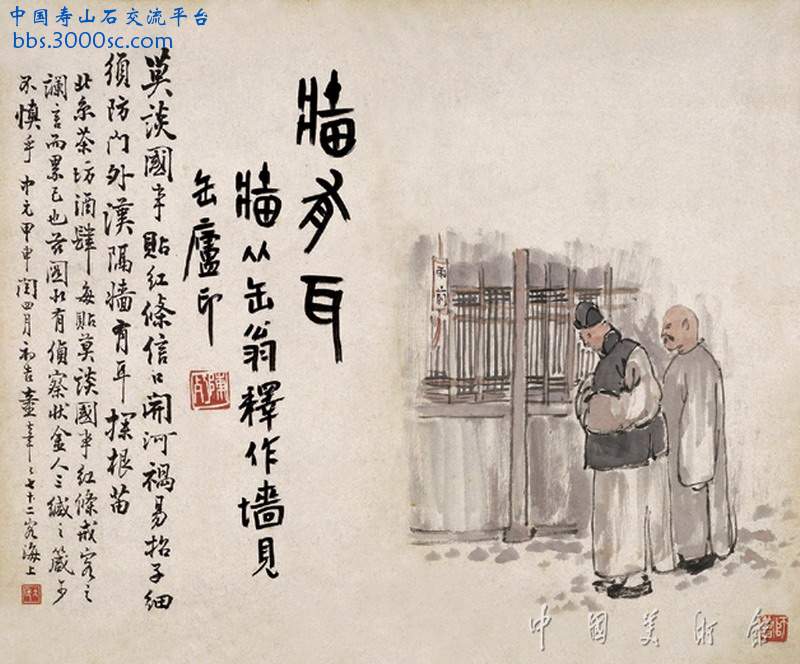 中国寿山石交流平台
bbs.3000sc.com
牆有耳
牆从缶翁釋作墻見
缶廬印
莫談國事貼紅條信口開河禍易招子細
須防門外漢隔墻有耳探根苗
北京茶坊酒肆每貼莫談國事紅條戒客之
讕言而累己也茲圖似有偵察狀金人三緘之箴可
不慎乎 甲申閏四月初吉 年七十二客海上
雨前
中國美術館